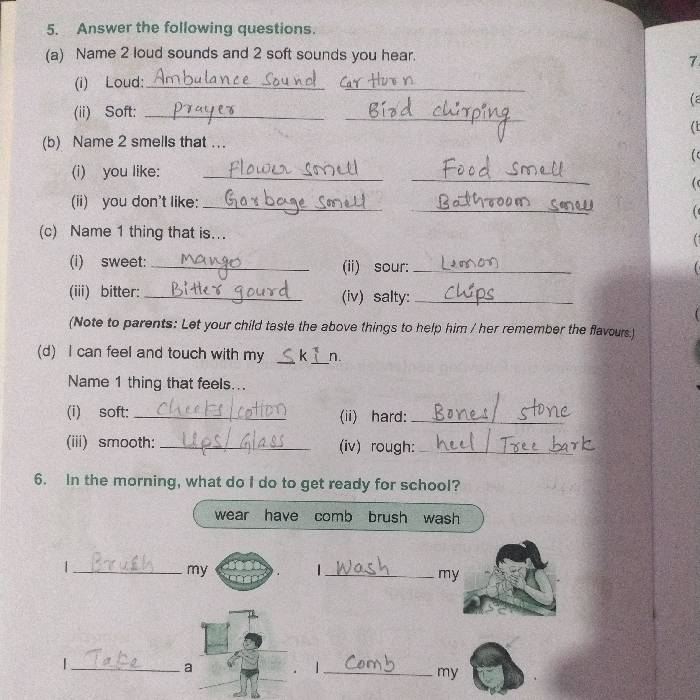 5. Answer the following questions.
(a) Name 2 loud sounds and 2 soft sounds you hear.
(i) Loud: Ambulance Sound Car Horn
(ii) Soft: Prayer Bird chirping
(b) Name 2 smells that ...
(i) you like: Flower smell Food smell
(ii) you don't like: Garbage smell Bathroom smell
(c) Name 1 thing that is...
(i) sweet: Mango (ii) sour: Lemon
(iii) bitter: Bitter gourd (iv) salty: chips
(Note to parents: Let your child taste the above things to help him / her remember the flavours.)
(d) I can feel and touch with my S k i n.
Name 1 thing that feels...
(i) soft: cheeks/cotton (ii) hard: Bones/ stone
(iii) smooth: Lips/ Glass (iv) rough: heel / Tree bark
6. In the morning, what do I do to get ready for school?
wear have comb brush wash
I Brush my . I Wash my .
I Take a . I Comb my .
7.